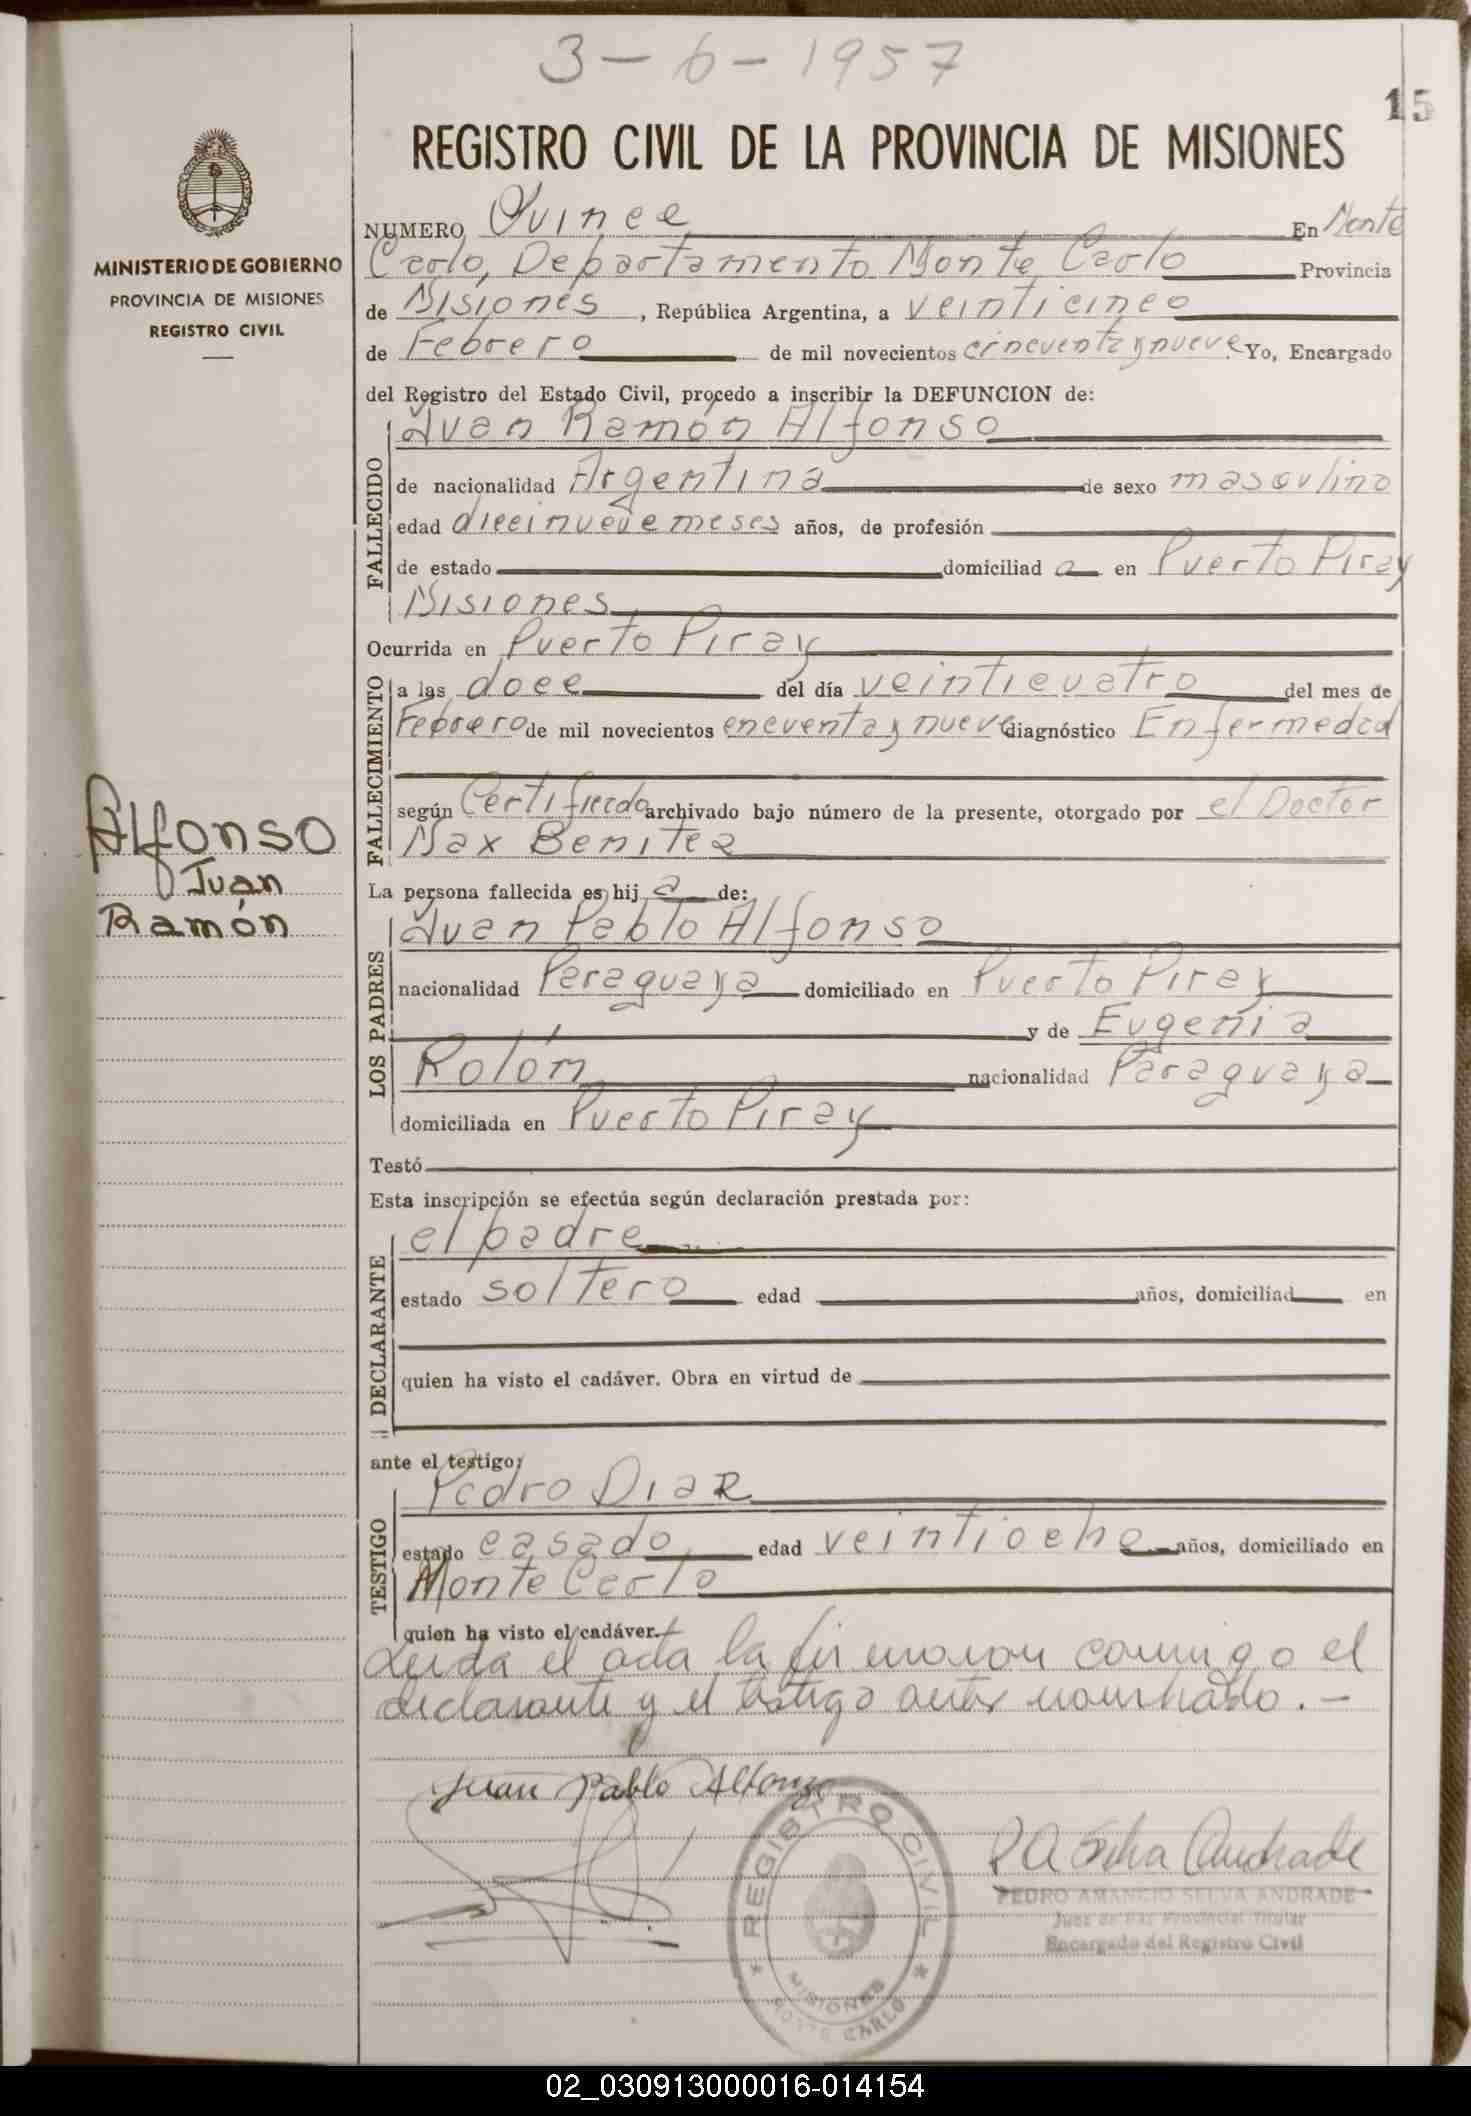 3-6-1957
15
REGISTRO CIVIL DE LA PROVINCIA DE MISIONES
MINISTERIO DE GOBIERNO
PROVINCIA DE MISIONES
REGISTRO CIVIL
NUMERO Quince En Monte
Carlo, Departamento Monte Carlo Provincia
de Misiones, República Argentina, a veinticinco
de Febrero de mil novecientos cincuenta y nueve Yo, Encargado
del Registro del Estado Civil, procedo a inscribir la DEFUNCION de:
FALLECIDO
Juan Ramón Alfonso
de nacionalidad Argentina de sexo masculino
edad diecinueve meses años, de profesión
de estado domiciliad a en Puerto Piray
Misiones
Ocurrida en Puerto Piray
FALLECIMIENTO
a las doce del día veinticuatro del mes de
Febrero de mil novecientos cncuenta y nueve diagnóstico Enfermedad
según Certificado archivado bajo número de la presente, otorgado por el Doctor
Max Benitez
Alfonso
Juan
Ramón
La persona fallecida es hij a de:
LOS PADRES
Juan Pablo Alfonso
nacionalidad Paraguaya domiciliado en Puerto Piray
y de Eugenia
Rolón nacionalidad Paraguaya
domiciliada en Puerto Piray
Testó
Esta inscripción se efectúa según declaración prestada por:
DECLARANTE
el padre
estado soltero edad años, domiciliad en
quien ha visto el cadáver. Obra en virtud de
ante el testigo:
TESTIGO
Pedro Diaz
estado casado edad veintiocho años, domiciliado en
Monte Carlo
quien ha visto el cadáver.
Leida el acta la firmaron conmigo el
declarante y el testigo antes nombrado.-
Juan Pablo Alfonzo
REGISTRO CIVIL
MISIONES
MONTE CARLO
P A Selva Andrade
PEDRO AMANCIO SELVA ANDRADE
Juez de Paz Provincial Titular
Encargado del Registro Civil
02_030913000016-014154